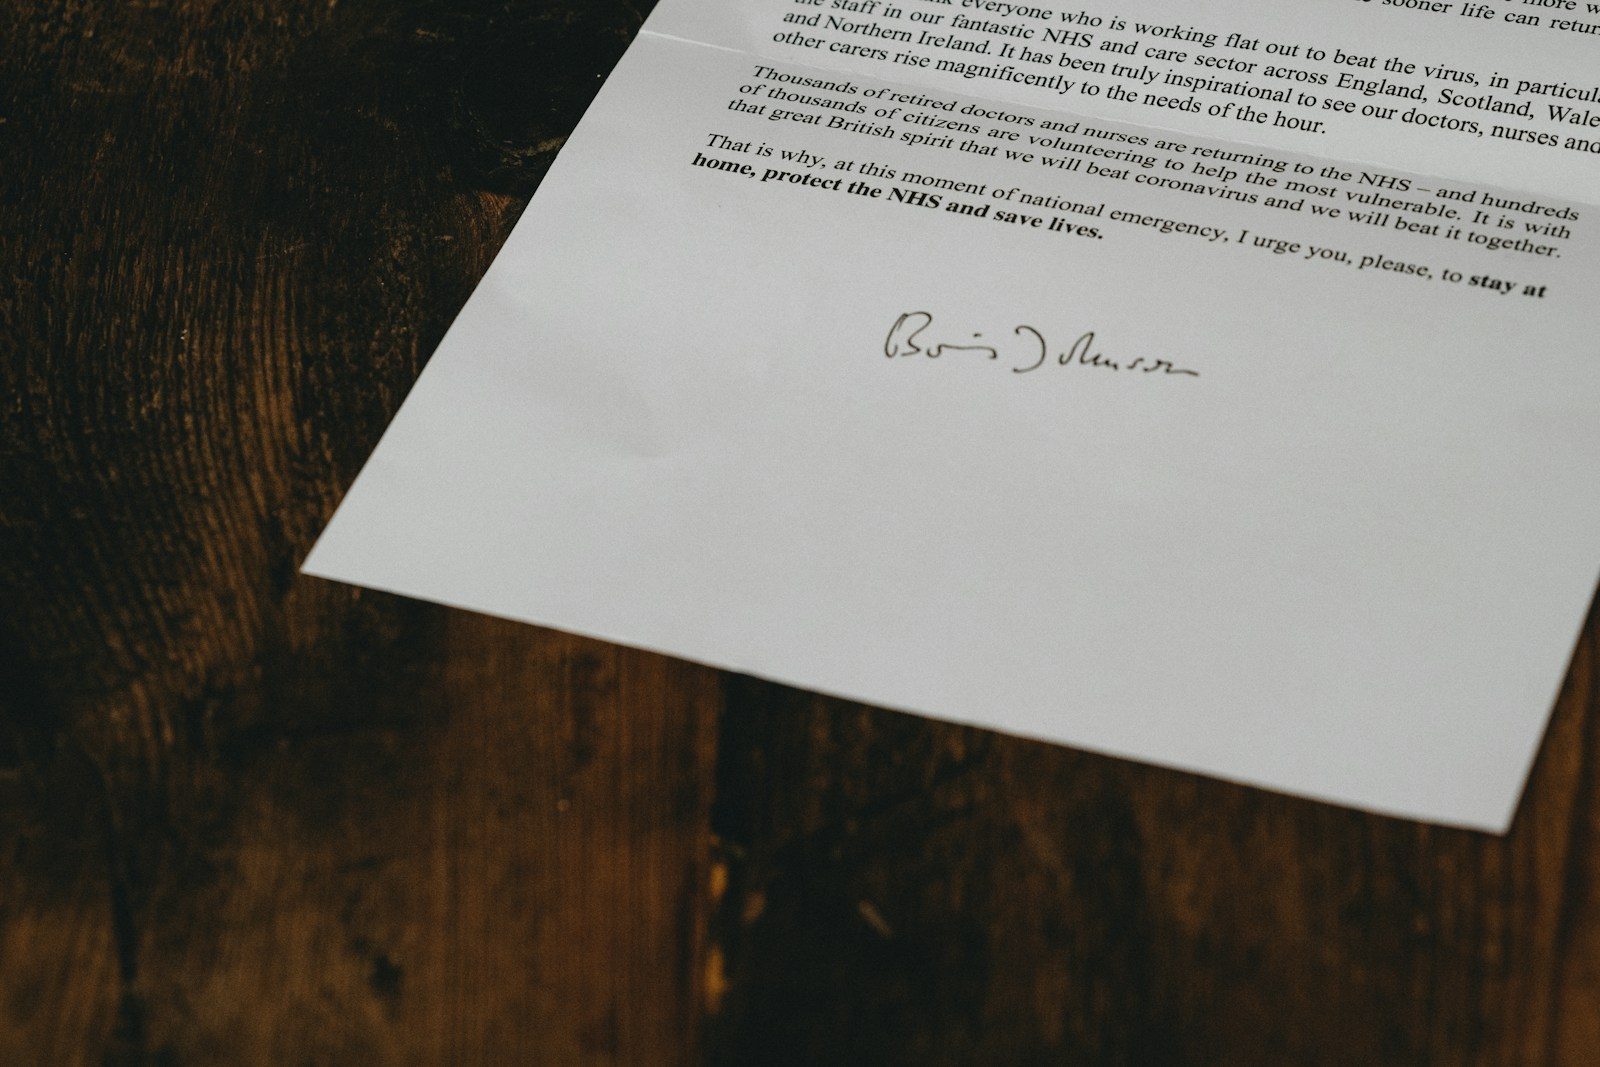 more
sooner life can retur
everyone who is working flat out to beat the virus, in particula
the staff in our fantastic NHS and care sector across England, Scotland, Wale
and Northern Ireland. It has been truly inspirational to see our doctors, nurses and
other carers rise magnificently to the needs of the hour.
Thousands of retired doctors and nurses are returning to the NHS – and hundreds
of thousands of citizens are volunteering to help the most vulnerable. It is with
that great British spirit that we will beat coronavirus and we will beat it together.
That is why, at this moment of national emergency, I urge you, please, to stay at
home, protect the NHS and save lives.
Boris Johnson